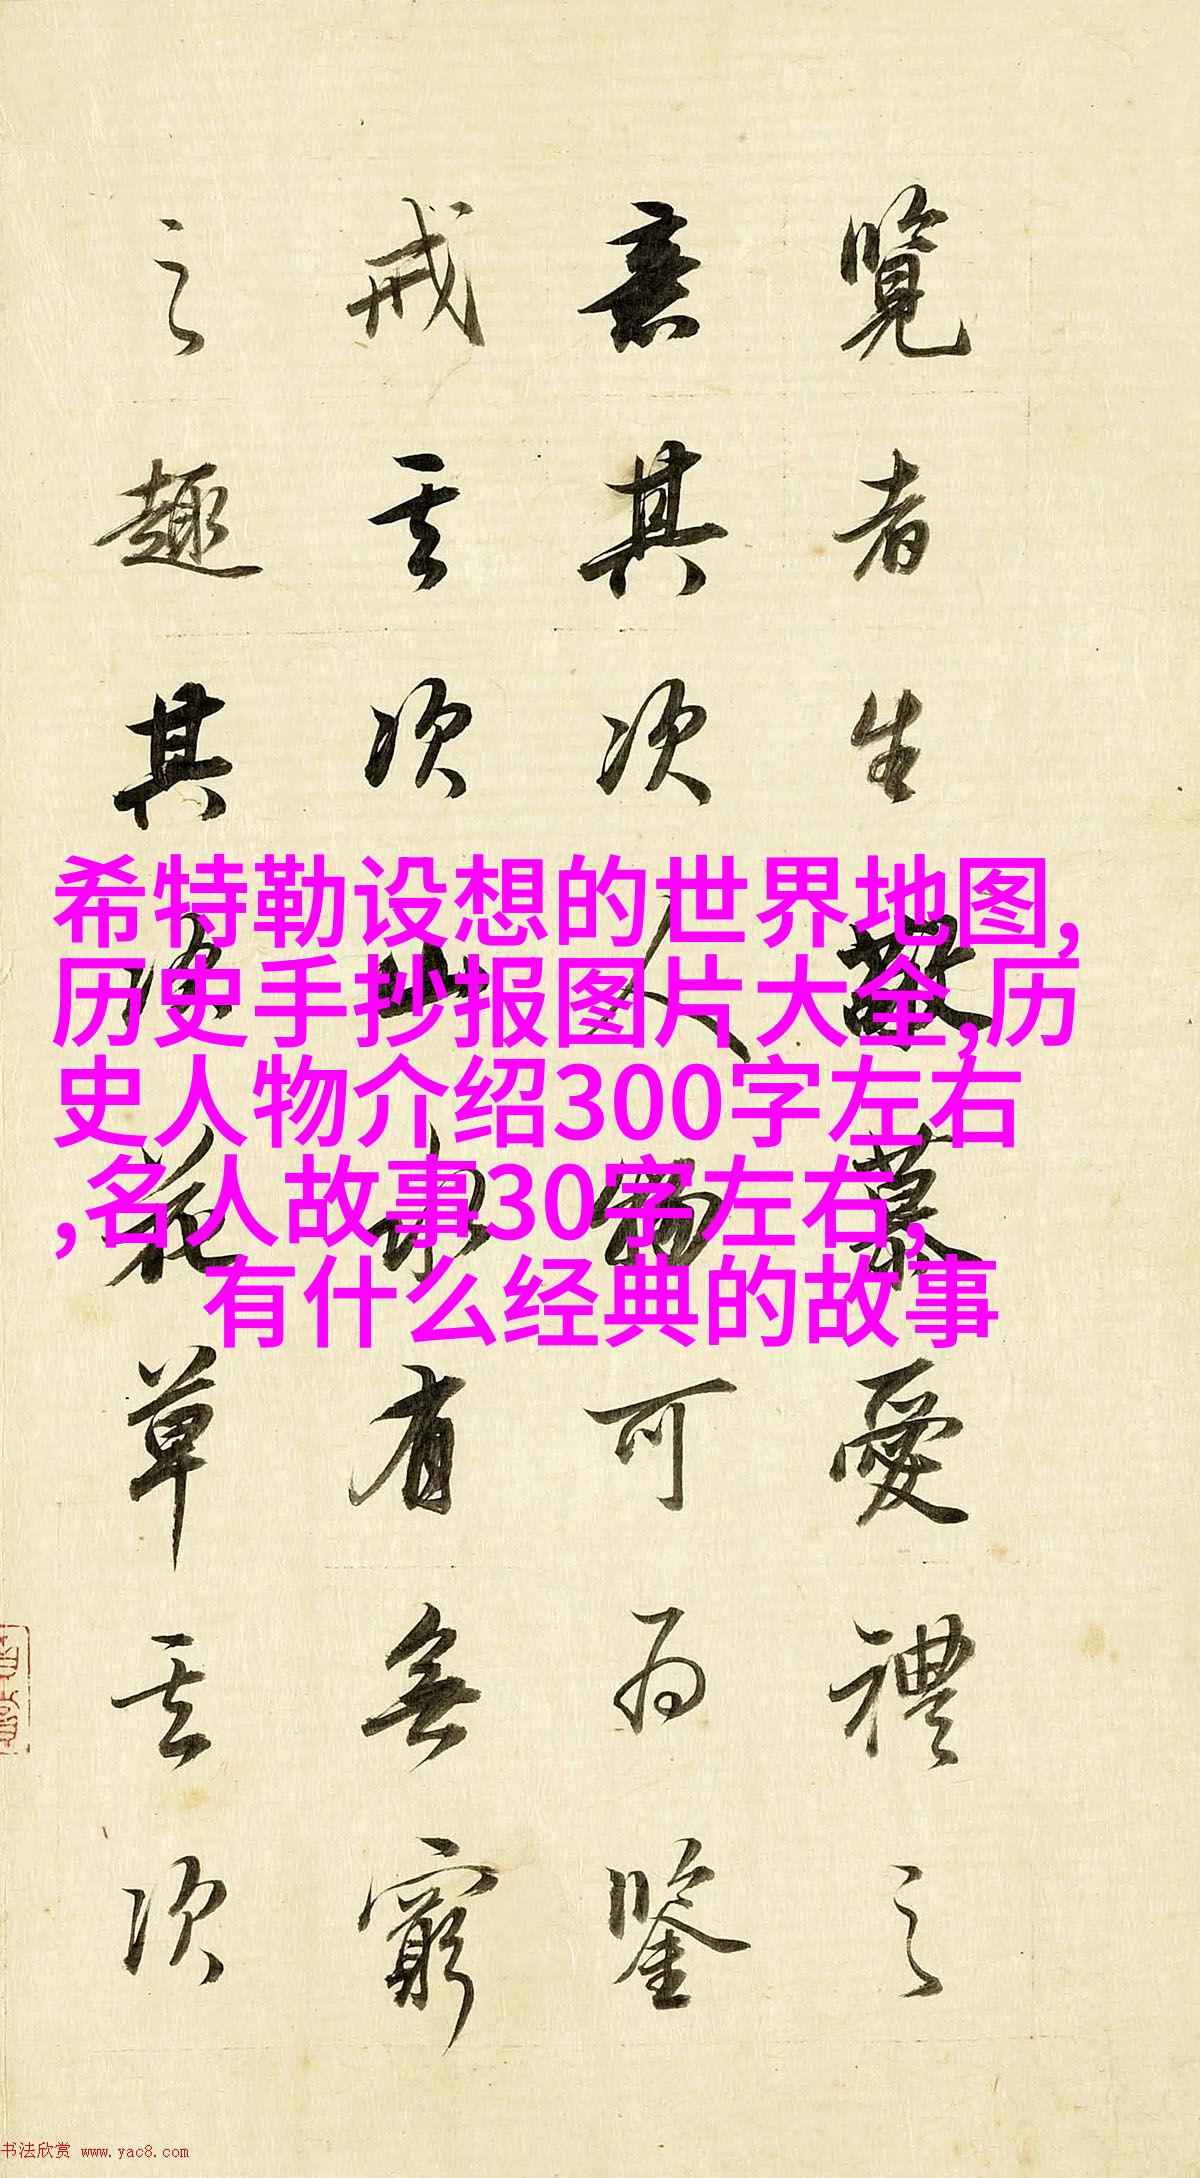 覽者生敬慕愛禮之
意其次人物可為鑒
戒其次山水有無窮
之趣其次花草其次
希特勒设想的世界地图,
历史手抄报图片大全,历
史人物介绍300字左右
,名人故事30字左右,
有什么经典的故事
书法欣赏 www.yac8.com